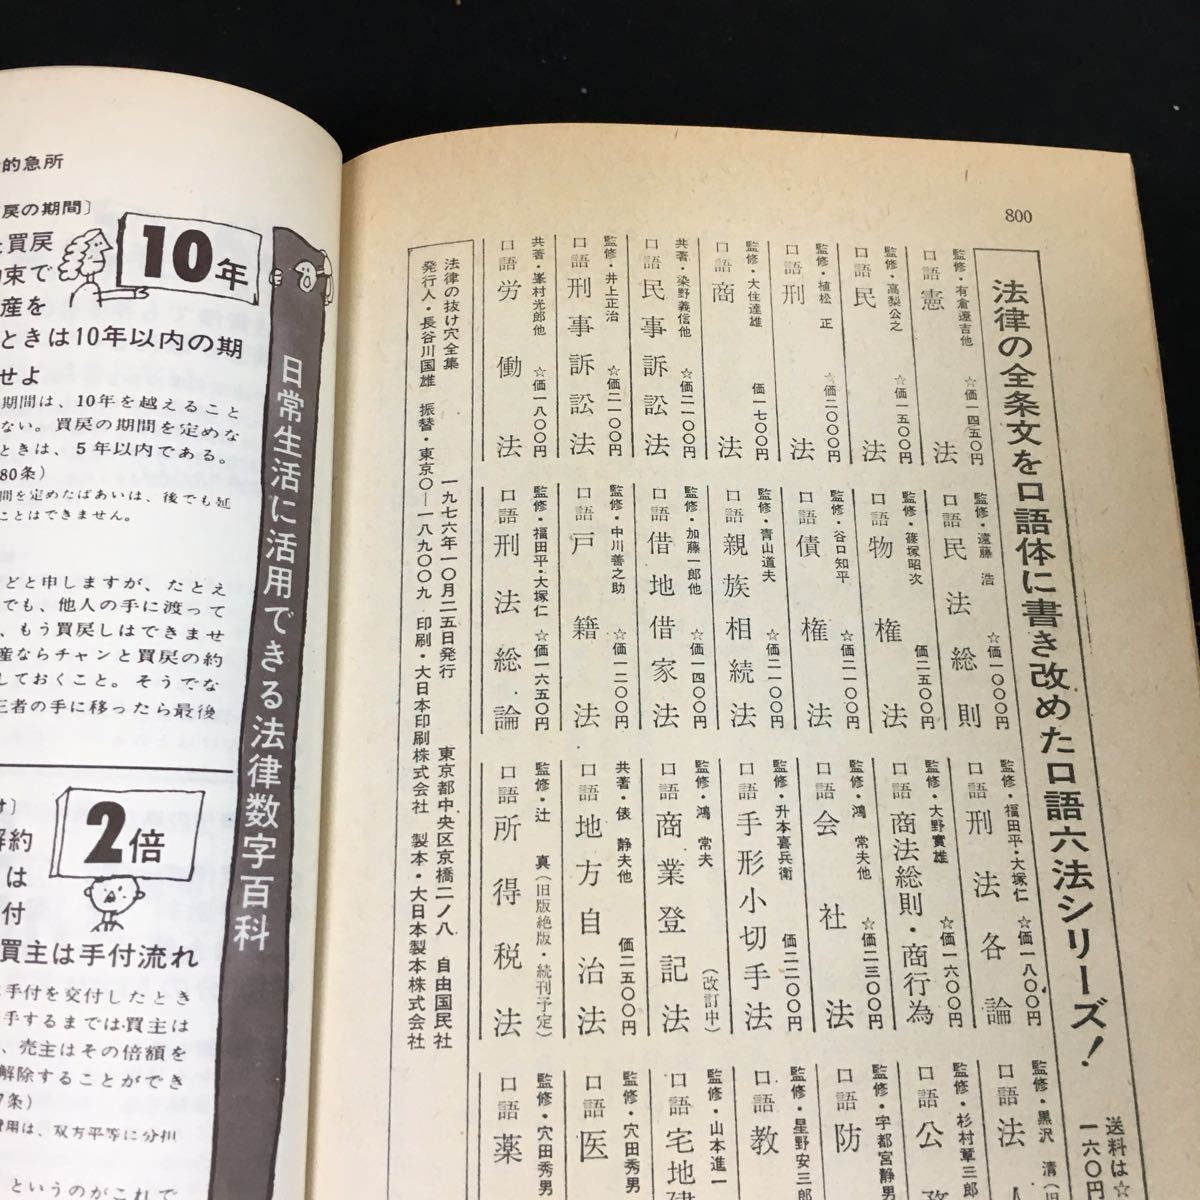 的急所
戻の期間〕
買戻
束で
産を
10年
ときは10年以内の期
せよ
期間は、10年を越えること
ない。買戻の期間を定めな
ときは、5年以内である。
80条）
間を定めたばあいは、後でも延
ことはできません。
どと申しますが、たとえ
でも、他人の手に渡って
、もう買戻しはできませ
産ならチャンと買戻の約
しておくこと。そうでな
三者の手に移ったら最後
解約
は
付
2倍
買主は手付流れ
手付を交付したとき
手するまでは買主は
、売主はその倍額を
解除することができ
7条）
費用は、双方平等に分担
というのがこれで
日常生活に活用できる法律数字百科
800
法律の全条文を口語体に書き改めた口語六法シリーズ！
送料は☆
一六〇円
監修・有倉遼吉他 ☆価一四五〇円
口語憲法
監修・高梨公之 ☆価一五〇〇円
口語民法
監修・植松正 ☆価二〇〇〇円
口語刑法
監修・大住達雄 価一七〇〇円
口語商法
共著・染野義信他 ☆価二一〇〇円
口語民事訴訟法
監修・井上正治 ☆価二一〇〇円
口語刑事訴訟法
共著・峯村光郎他 ☆価一八〇〇円
口語労働法
監修・遠藤浩 ☆価一〇〇〇円
口語民法総則
監修・篠塚昭次 価二五〇〇円
口語物権法
監修・谷口知平 ☆価二一〇〇円
口語債権法
監修・青山道夫 ☆価一二〇〇円
口語親族相続法
監修・加藤一郎他 ☆価一四〇〇円
口語借地借家法
監修・中川善之助 ☆価一二〇〇円
口語戸籍法
監修・福田平・大塚仁 ☆価一六五〇円
口語刑法総論
監修・福田平・大塚仁 ☆価一八〇〇円
口語刑法各論
監修・大野實雄 ☆価一六〇〇円
口語商法総則・商行為
監修・鴻常夫他 ☆価二三〇〇円
口語会社法
監修・升本喜兵衛 価二二〇〇円
口語手形小切手法
監修・鴻常夫 （改訂中）
口語商業登記法
共著・俵静夫他 価二五〇〇円
口語地方自治法
監修・辻真（旧版絶版・続刊予定）
口語所得税法
監修・黒沢清（旧
口語法
監修・杉村章三郎
口語公務
監修・宇都宮静男
口語防
監修・星野安三郎
口語教
監修・山本進一
口語宅地建
監修・穴田秀男
口語医
監修・穴田秀男
口語薬
法律の抜け穴全集 一九七六年一〇月二五日発行 東京都中央区京橋二ノ八 自由国民社
発行人・長谷川国雄 振替・東京〇―一八九〇〇九 印刷・大日本印刷株式会社 製本・大日本製本株式会社